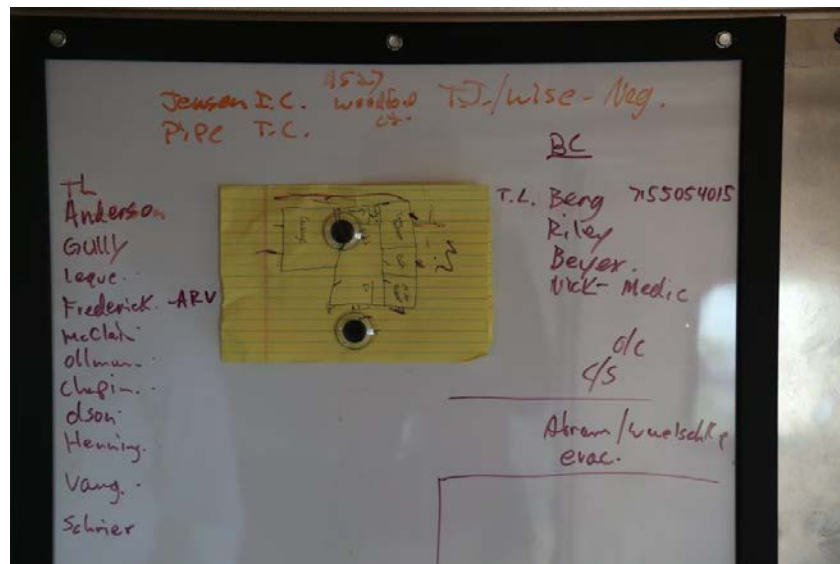 4527
Jensen I.C. Woodford Ct. T.J./Wise - Neg.
Pipe T.C.
TL
Anderson
Gully
Leque
Frederick - ARV
McClain
Ollman
Chapin
Olson
Henning
Vang
Schrier
BC
T.L. Berg 7155054015
Riley
Beyer
Nick - Medic
O/C
C/S
Abram/
evac.